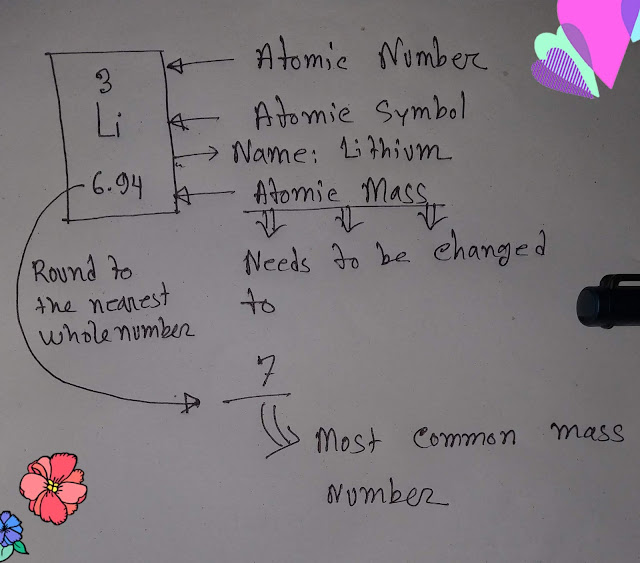 3
Li
6.94
Atomic Number
Atomic Symbol
Name: Lithium
Atomic Mass
Needs to be changed
to
Round to
the nearest
whole number
7
Most common mass
Number